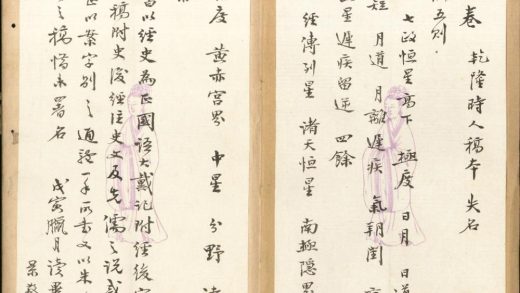 卷 乾隆時人稿本 失名
五则
七政恒星高下 極度 日月 日道
月道 月離遲疾 氣朔閏
星遲疾留逆 四餘
經傳列星 諸天恒星 南極隱界
度 黄赤宫界 中星 分野
以經史為正國語大戴記附經後
稿附史後經注史文及先儒之説或
正以案字别之通 一手所書又以朱
之稿惜未署名 戊寅臘月讀畢
景